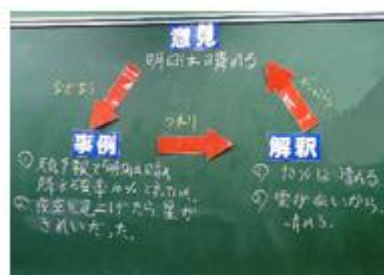 意見
明日は晴れる
なぜなら
だから
つまり
事例
解釈
① 天気予報で明日は晴れ
降水確率10%と言っていた。
② 夜空を見上げたら星が
きれいだった。
① 10%は晴れる
② 雲がないから
晴れる。